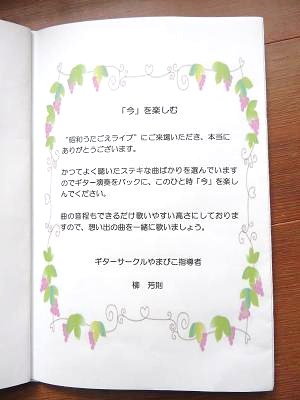 「今」を楽しむ
“昭和うたごえライブ”にご来場いただき、本当に
ありがとうございます。
かつてよく聴いたステキな曲ばかりを選んでいます
のでギター演奏をバックに、このひと時「今」を楽し
んでください。
曲の音程もできるだけ歌いやすい高さにしておりま
すので、想い出の曲を一緒に歌いましょう。
ギターサークルやまびこ指導者
柳　芳則